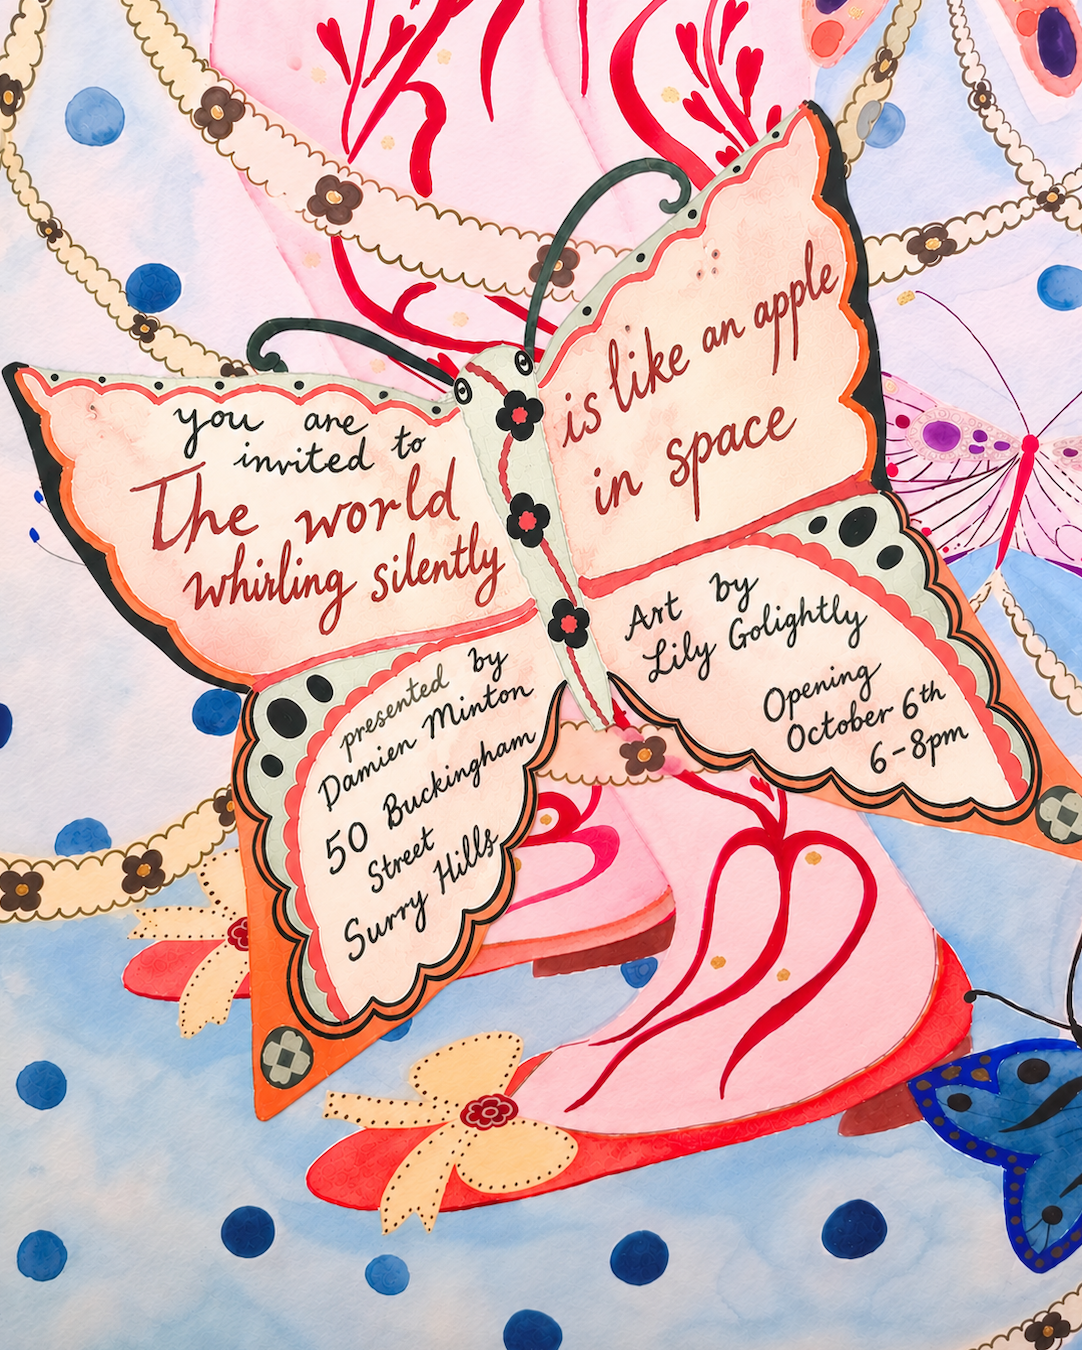 you are
invited to
The world
whirling silently
is like an apple
in space
presented by
Damien Minton
50 Buckingham
Street
Surry Hills
Art by
Lily Golightly
Opening
October 6th
6-8pm